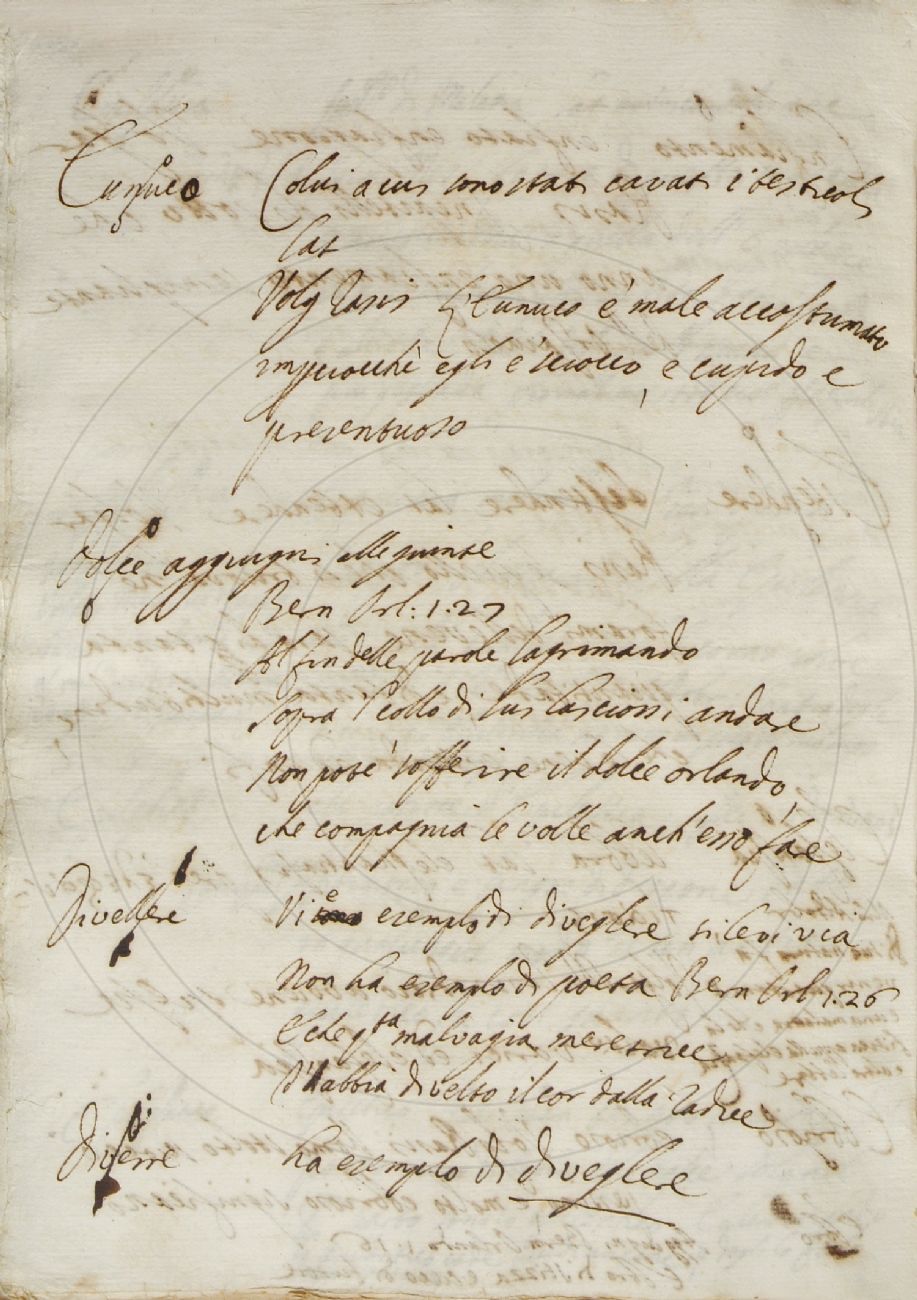 Eunuco Colui a cui sono stati cavati i testicoli
Lat
Volg Rasis L'Eunuco è male accostumato
imperocchè egli è sciocco, e cupido e
presentuoso
Dolce aggiugni alle giunte
Bern Orl: 1. 27
Al fin delle parole lagrimando
Sopra 'l collo di lui lasciossi andare
Non poté sofferire il dolce Orlando,
che compagnia le volle anch'esso fare
Divellere Vi è esemplo di diveglere si levi via
Non ha esemplo di poeta Bern Orl 1. 26
E che qsta malvagia meretrice
T'habbia divelto il cor dalla radice
Diverre ha esemplo di diveglere